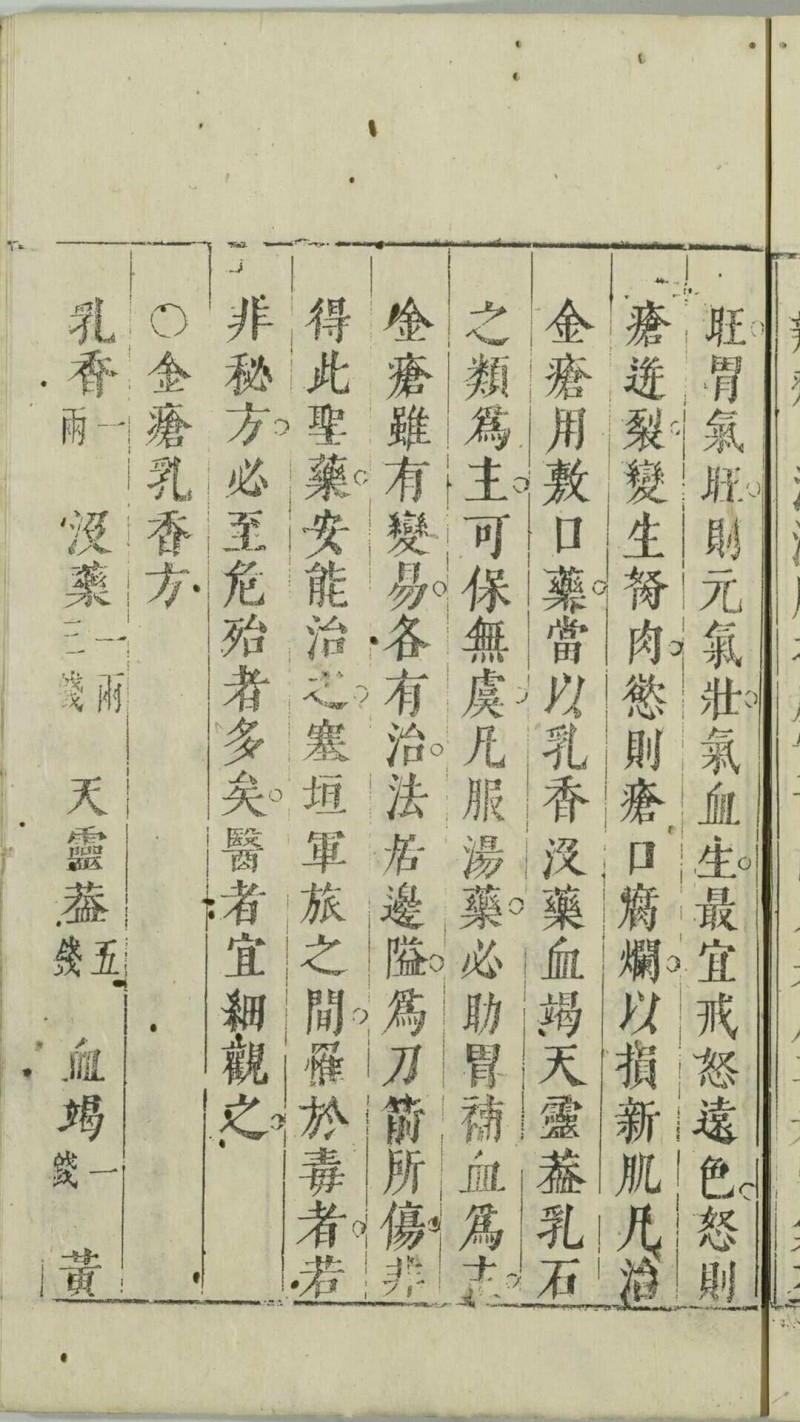 旺。胃氣旺。則元氣壯。氣血生。最宜戒怒遠色。怒則
瘡迸裂。變生胬肉。慾則瘡口腐爛。以損新肌凡治
金瘡用敷口藥。當以乳香沒藥血竭天靈蓋乳石
之類爲主。可保無虞。凡服湯藥。必助胃補血爲主。
金瘡雖有變易。各有治。法居邊隘。爲刀箭所傷。非
得此聖藥。安能治之。塞垣軍旅之間。罹於毒者。若
非秘方。必至危殆者多矣。醫者宜細觀之。
○金瘡乳香方
乳香一兩 沒藥一兩三錢 天靈蓋五錢 血竭一錢 黃